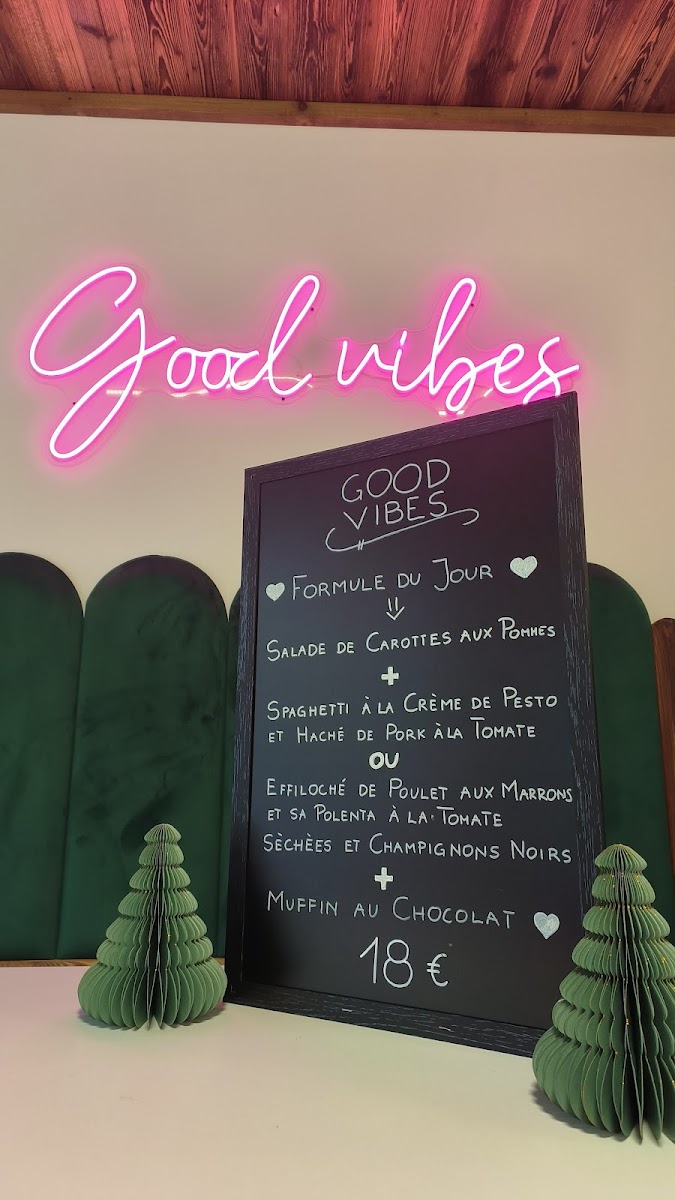 Good vibes
GOOD
VIBES
FORMULE DU JOUR
SALADE DE CAROTTES AUX POMMES
+
SPAGHETTI À LA CRÈME DE PESTO
ET HACHÉ DE PORK À LA TOMATE
OU
EFFILOCHÉ DE POULET AUX MARRONS
ET SA POLENTA À LA TOMATE
SÈCHÈES ET CHAMPIGNONS NOIRS
+
MUFFIN AU CHOCOLAT
18 €